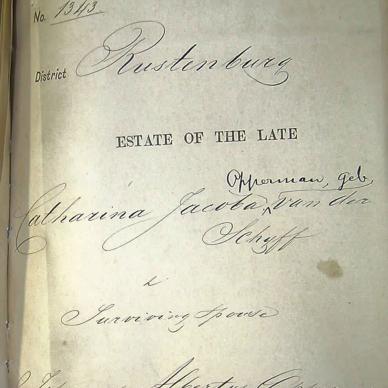 No. 1343.
District Rustenburg
ESTATE OF THE LATE
Opperman, geb
Catharina Jacoba, van der
Schyff
&
Surviving Spouse
Albertus